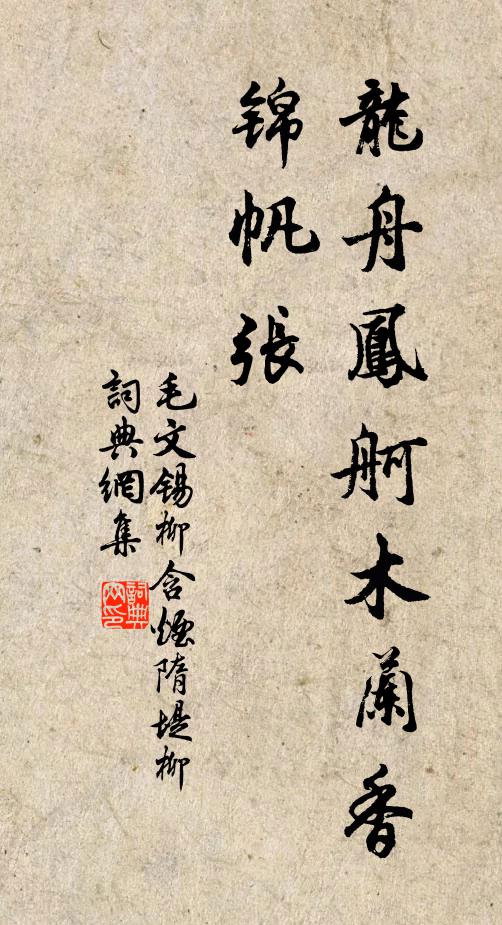 龍舟鳳舸木蘭香
錦帆張
毛文錫柳含煙隋堤柳
詞典網集
詞典
網印